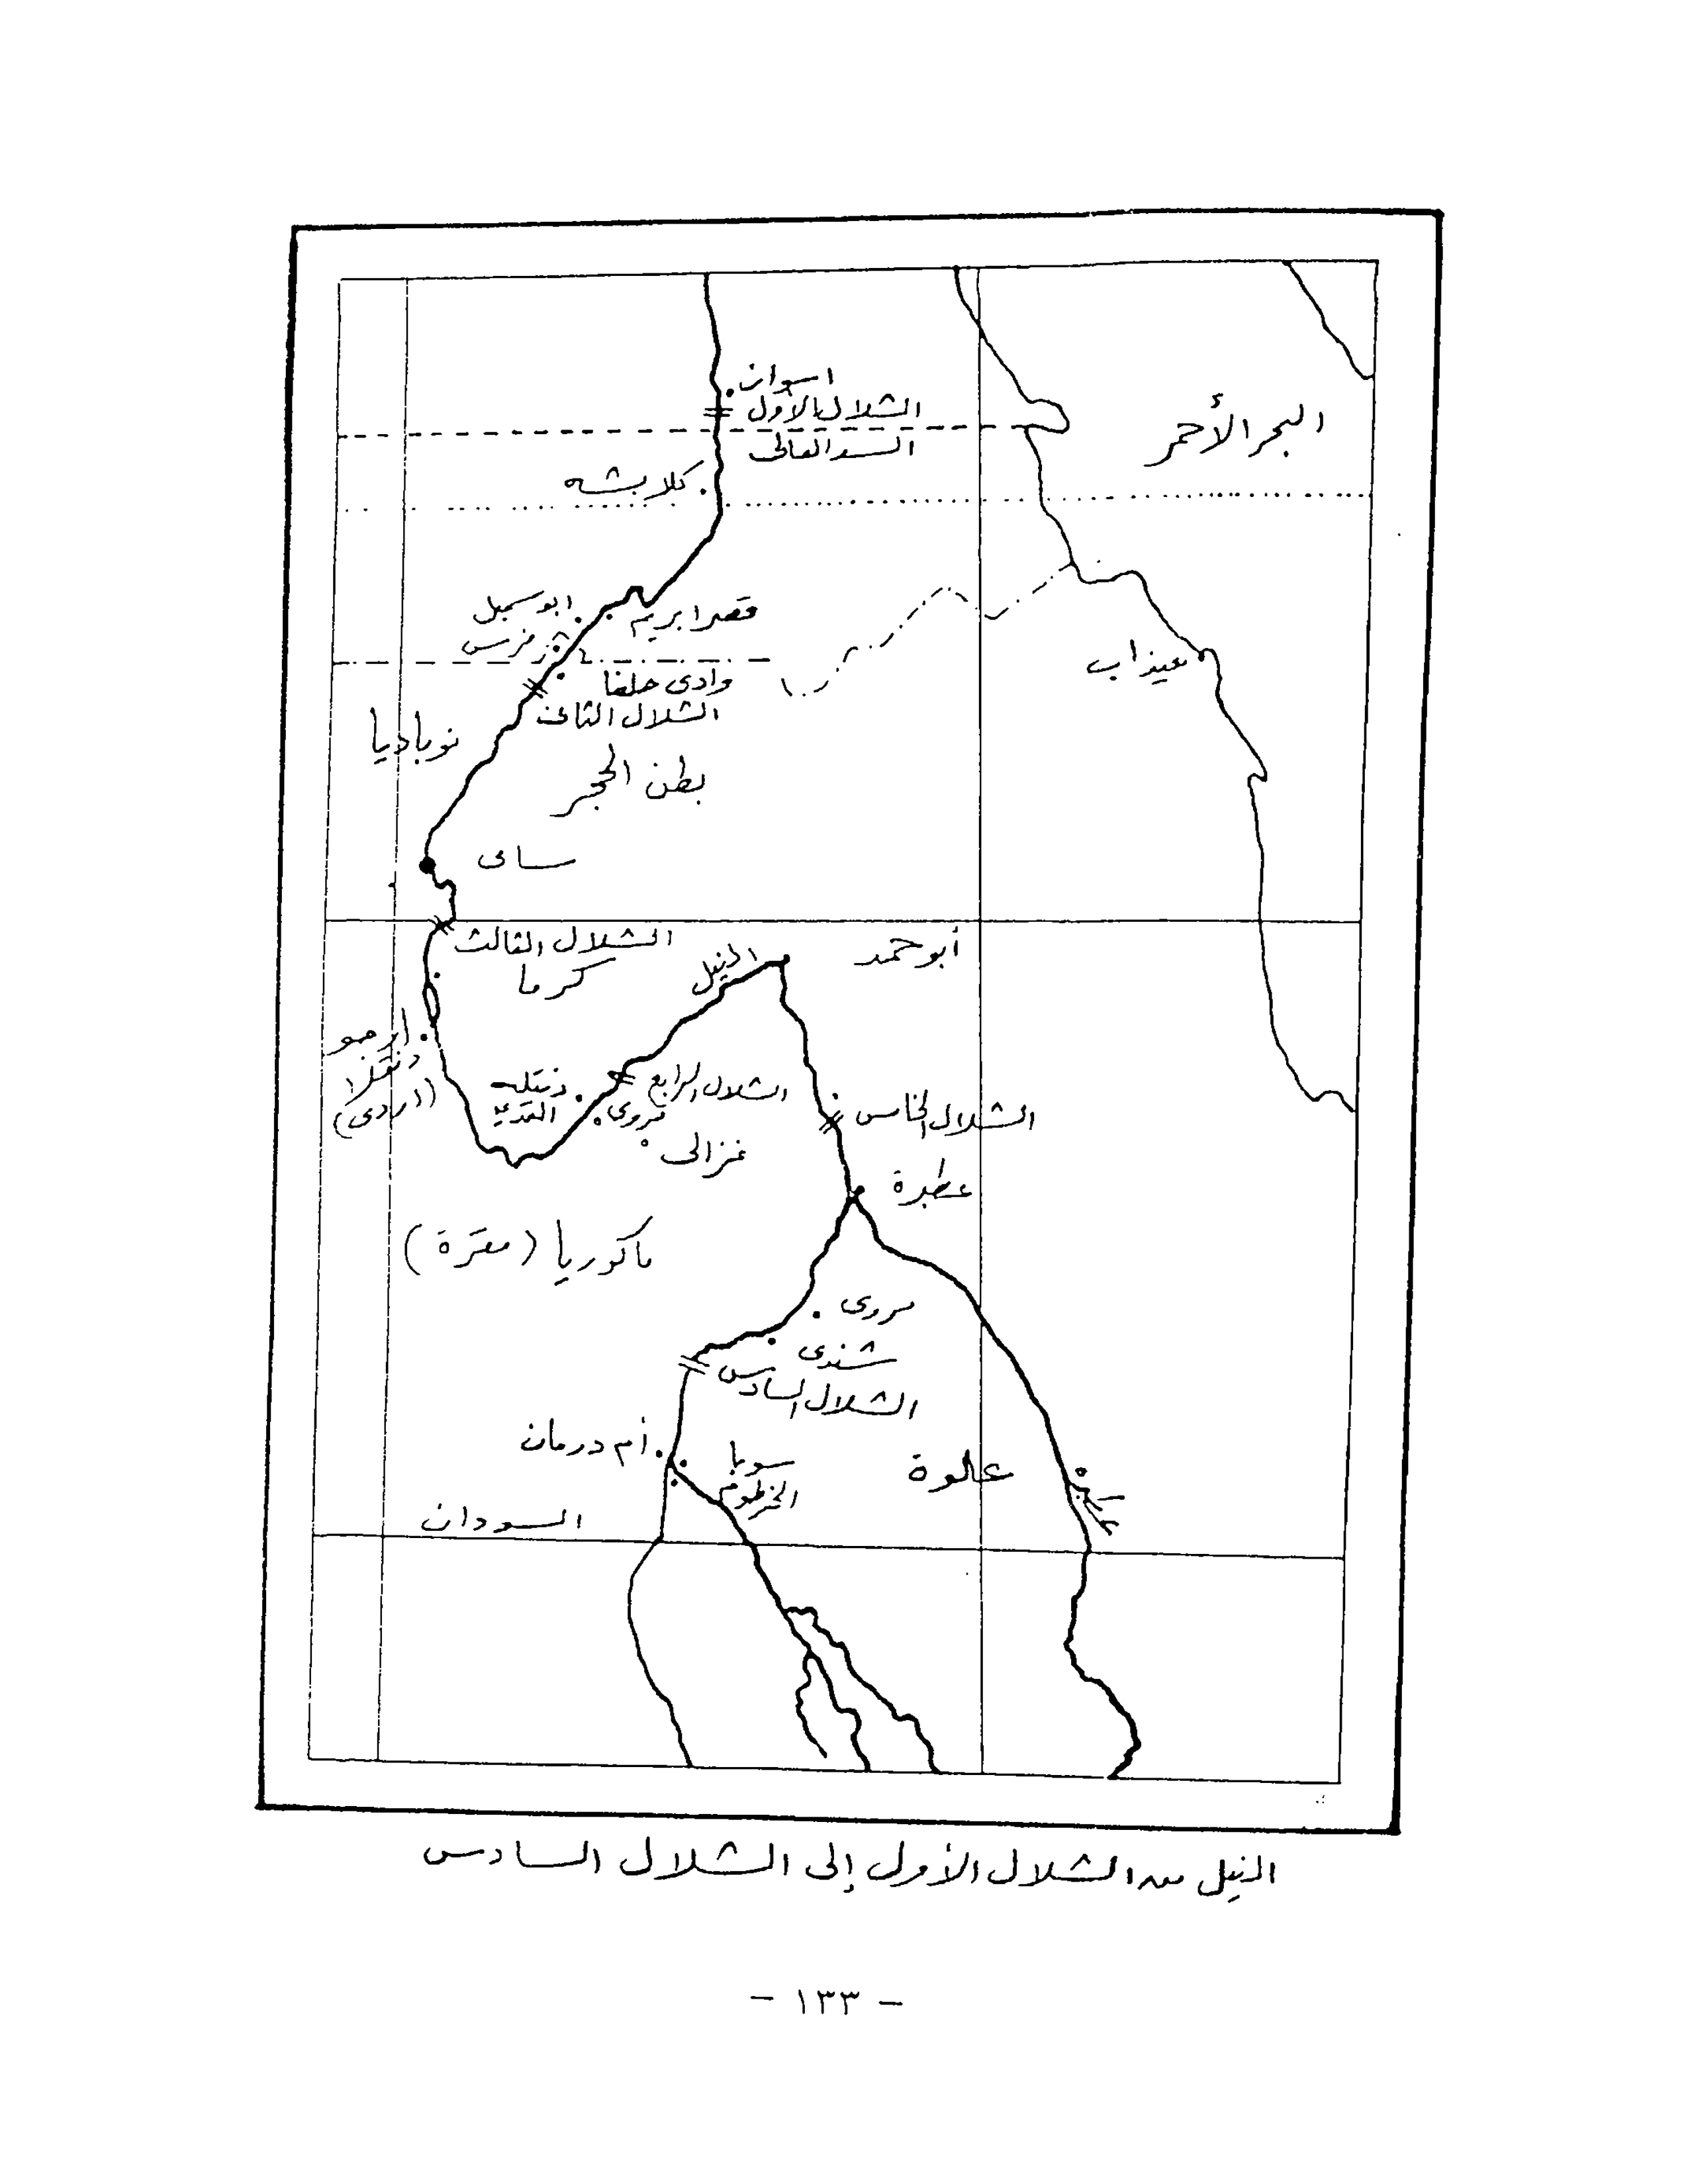 اسوان
الشلال الأول
السد العالى
البحر الأحمر
كلابشه
ابو سمبل
قصر ابريم
فرس
عيذاب
وادى حلفا
الشلال الثانى
نوباديا
بطن الحجر
ساى
الشلال الثالث
أبو حمد
النيل
كرما
ارجو
دنقلا
(اردى)
الشلال الرابع
دنقله
مروى
الشلال الخامس
غزالى
عطبرة
ماكوريا (مقرة)
مروى
شندى
الشلال السادس
أم درمان
سوبا
الخرطوم
علوة
السودان
النيل من الشلال الأول إلى الشلال السادس
- ١٣٣ -